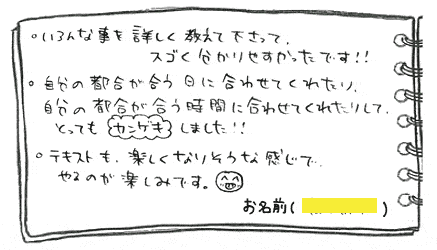 ○ いろんな事を詳しく教えて下さって、
スゴく分かりやすかったです!!
○ 自分の都合が合う日に合わせてくれたり、
自分の都合が合う時間に合わせてくれたりして、
とっても カンゲキ しました!!
○ テキストも、楽しくなりそうな感じで
やるのが楽しみです。
お名前( )